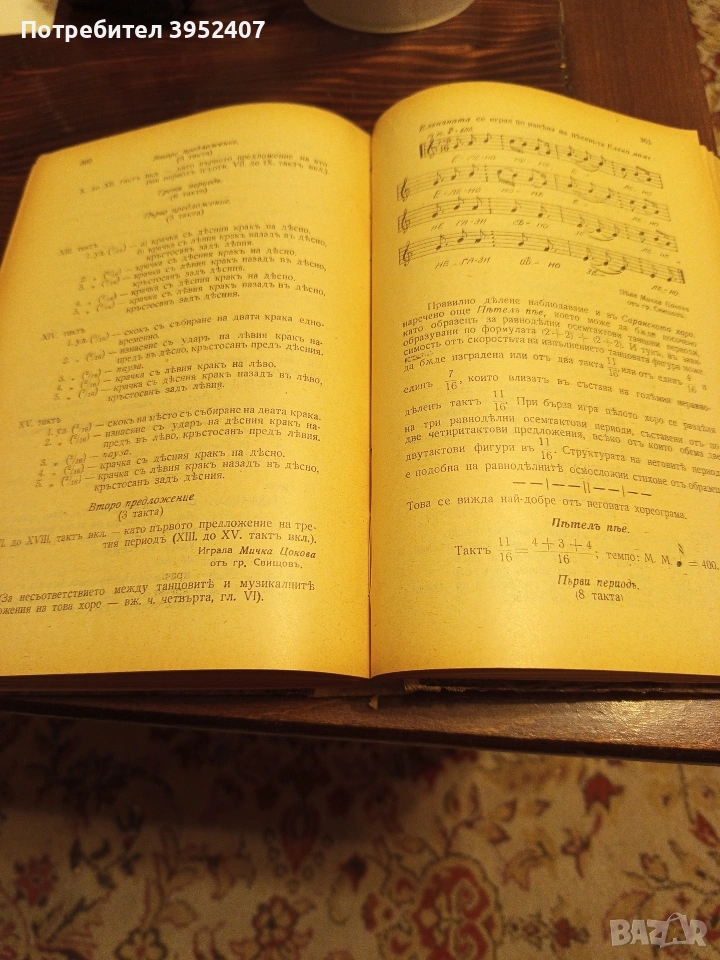 Потребител 3952407
Второ предложение.
(3 такта)
X. до XII. тактъ вкл. — като първото предложение на вто-
рия периодъ
VII. до IX. тактъ вкл.).
Трети периодъ.
(6 такта)
Първо предложение.
(3 такта)
XIII. тактъ
крачка съ дѣсния кракъ на дѣсно,
крачка съ лѣвия кракъ назадъ въ дѣсно,
кръстосанъ задъ дѣсния.
крачка съ дѣсния кракъ на дѣсно.
крачка съ лѣвия кракъ назадъ въ дѣсно,
кръстосанъ задъ дѣсния.
XIV. тактъ
— скокъ съ събиране на двата крака едно-
временно.
— нанасяне съ ударъ на лѣвия кракъ на-
предъ въ дѣсно, кръстосанъ предъ дѣсния.
3. „ — пауза.
— крачка съ лѣвия кракъ на лѣво.
— крачка съ дѣсния кракъ назадъ въ лѣво,
кръстосанъ задъ лѣвия.
XV. тактъ
— скокъ на мѣсто съ събиране на двата крака.
— нанасяне съ ударъ на дѣсния кракъ на-
предъ въ лѣво, кръстосанъ предъ лѣвия.
3. „ — пауза.
4. „ — крачка съ дѣсния кракъ на дѣсно.
5. „ — крачка съ лѣвия кракъ назадъ въ дѣсно,
кръстосанъ задъ дѣсния.
Второ предложение
(3 такта)
до XVIII. тактъ вкл. — като първото предложение на тре-
тия периодъ (XIII. до XV. тактъ вкл.).
Играла Мичка Цокова
отъ гр. Свищовъ.
(За несъответствието между танцовитѣ и музикалнитѣ
ожения на това хоре — вж. ч. четвърта, гл. VI).
Еленината се играе по напѣва на пѣсеньта
Е - ЛЕ - НО
НЕ - ГА - ЗИ СѢ - НО
НЕ - ГА-ЗИ СѢ - НО
отъ гр. Свищовъ.
Правилно дѣлене наблюдаваме и въ
наречено още Пѣтелъ пѣе, което може да бѫде посочено
като образецъ за равноделни осемтактови танцови периоди,
образувани по формулата (2+2) + (2+2). И тукъ, въ зави-
симость отъ скоростьта на изпълнението танцовата фигура може
да бѫде изградена или отъ два такта 11/16 или отъ единъ 4/16 и
единъ 7/16, които влизатъ въ състава на големия неравно-
дѣленъ тактъ 11/16. При бърза игра цѣлото хоро се раздѣля
на три равнодѣлни осемтактови периоди, съставени отъ по
две четиритактови предложения, всѣко отъ които обема две
двутактови фигури въ 11/16. Структурата на неговитѣ периоди
е подобна на равноделнитѣ осмосложни стихове отъ образеца
— — | — — || — — | — —
Това се вижда най-добре отъ неговата хореограма.
Пѣтелъ пѣе.
Тактъ 11/16 = 4 + 3 + 4/16; темпо: М. М. ♪ = 400.
Първи периодъ.
(8 такта)
BAZAR